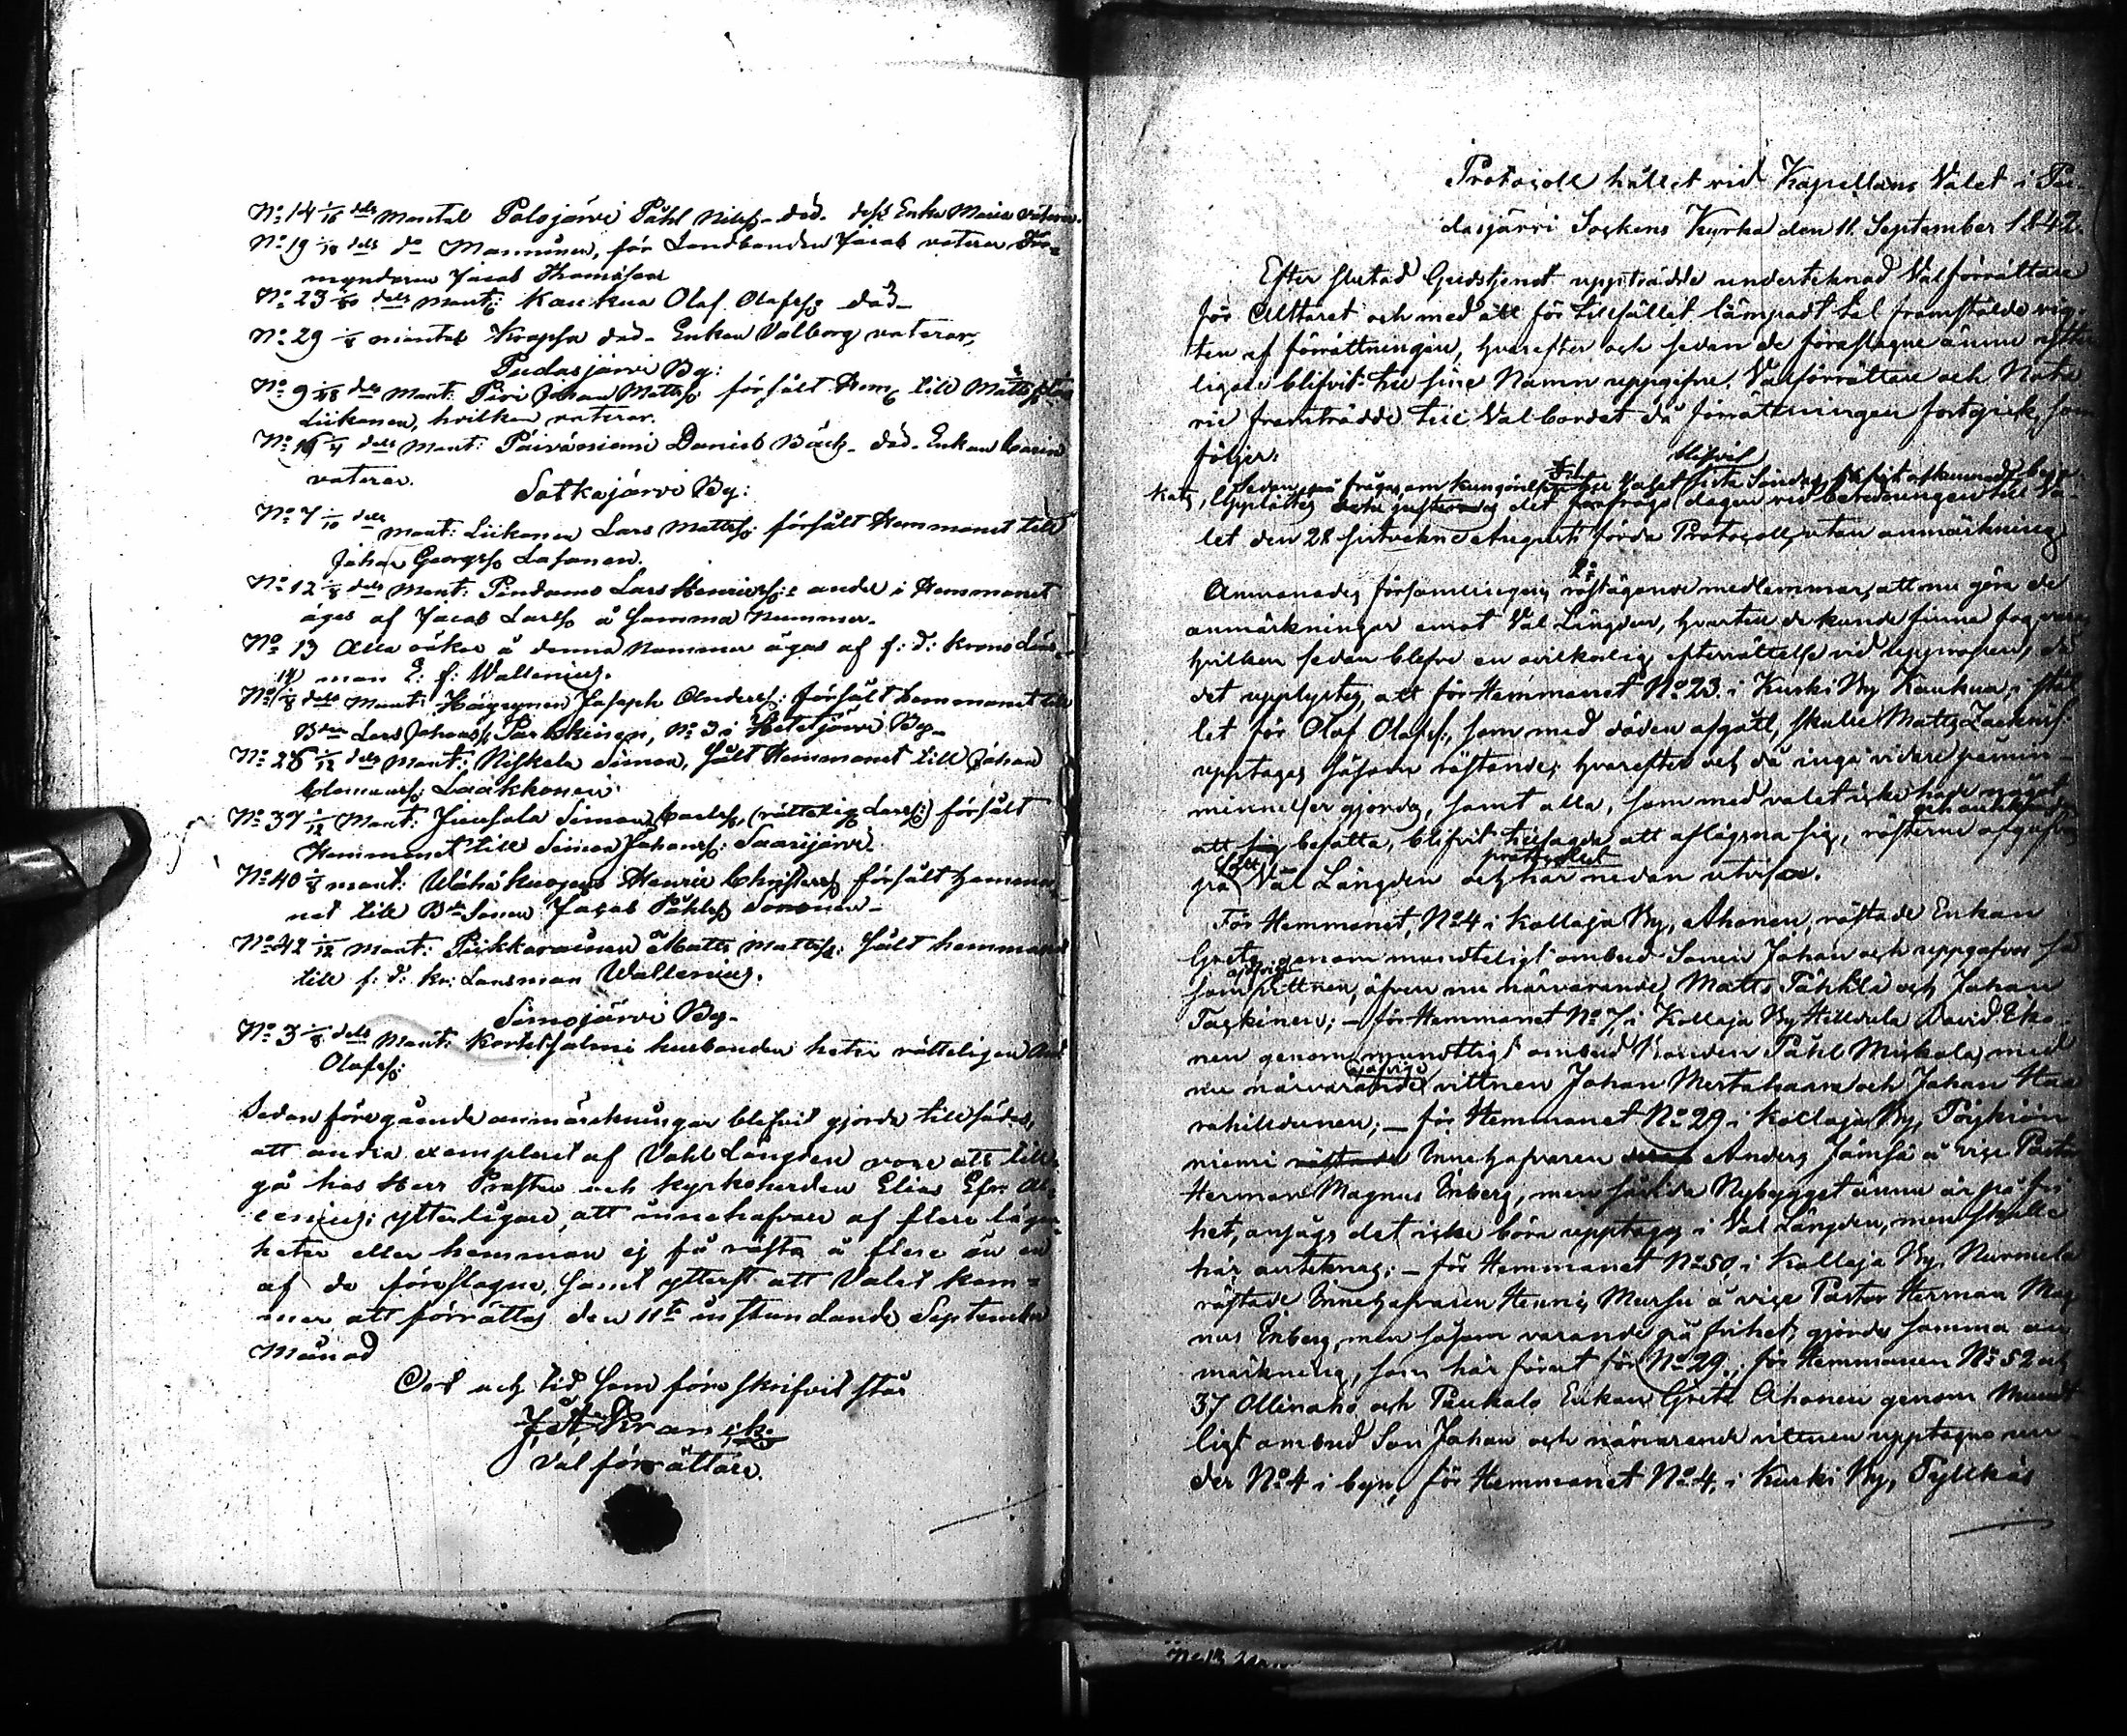 No 14 1/16 dels mantal Polojärvi Påhl Nilss. död. dess Enka Maria voterar.
No 19 1/10 dels do Manninen, för Landbonden Jacob voterar För=
myndaren Jacob Thomasson
No 23 1/80 dels mant: Kaukua Olof Olofss. död
No 29 1/8 mantal Krapsa död. Enkan Valborg voterar,
Pudasjärvi By:
No 9 1/48 dels Mant: Piri Johan Mattss. försålt Hem. till Matts
Liikanen, hvilken voterar.
No 16 1/4 dels Mant: Päiväniemi Daniel Bäck. död. Enkan Carin
voterar.
Sotkajärvi By:
No 7 1/10 dels mant: Liikanen Lars Mattss. försålt Hemmanet till
Johan Georgss. Lasanen.
No 12 1/8 dels Mant: Pindamo Lars Henricss:s andel i Hemmanet
äges af Jacob Larss. å samma Nummer.
No 13 Alla åkar å denna Nummer ägas af f: d: Krono Läns=
man E: f: Wallenius.
No 14 1/8 dels Mant: Häyrynen Joseph Anderss: försålt hemmanet till
Bdn Lars Johanss. Parkkinen, No 3 i Hetejärvi By.
No 26 1/12 dels Mant: Niskala Simon, sålt Hemmanet till Johan
Clemenss: Laakkonen
No 37 1/12 Mant: Jiusola Simon Carlss, (rätteligen Larss:) försålt
Hemmanet till Simon Johanss: Saarijärvi.
No 40 1/8 mant: Wähäkuopus Henric Christerss. försålt hemma=
net till Bde Sonen Jacob Påhlss. Soronen
No 42 1/12 Mant: Pirkkarainen Matts Mattss: sålt hemmanet
till f: d: kr: Länsman Wallenius.
Simojärvi By.
No 3 1/8 dels Mant: Kortetsalmi husbonden heter rätteligen And
Olofss:
Sedan föregående anmärkningar blefvit gjorda tillsades,
att andra exemplaret af Vahl Längden vore att till=
gå hos Herr Prosten och kyrkoherden Elias Efr: Al=
cenius; ytterligare, att innehafvare af flere lägen=
heter eller hemman ej få rösta å flere än en
af de föreslagne, samt ytterst att Valet kom=
mer att förrättas den 11te instundande September
Månad
Ort och tid som föreskrifvit står
J. A. Kranck.
Val förrättare.
Protocoll hållet vid Kapellans Valet i Pu=
dasjärvi Sockens Kyrka den 11. September 1842.
Efter slutad Gudstjenst uppträdde undertecknad Valförrättare
för Altaret och med ett för tillfället lämpadt tal framstälde vig=
ten af förrättningen, hvarefter och sedan de föreslagne ännu ytter
ligare blifvit till sine Namn uppgifne. Valförrättare och Nota
rie framträdde till Val bordet då förrättningen fortgick, som
följer:
1o blifvit
Sedan på frågan om kungörelse till Valet sista Söndag blifvit afkunnadt beja=
kats, Upplästes det förfrågsdagen vid beredningen till Va=
let den 28 sistvekne Augusti förda Protocoll, utan anmärkning
2o
Anmanades församlingens röstägande medlemmar, att nu göra de
anmärkningar emot Val Längden, hvartill de kunde finna fog vara
hvilken sedan blefve en ovilkorlig efterrättelse vid uppropen, då
det upplystes, att för Hemmanet No 23. i Kurki By Kaukua, i stäl
let för Olof Olofss., som med döden afgått, skulle Matts Zachriss:
upptagas såsom röstande; hvarefter och då inga vidare påmin=
nelser gjordes, samt alla, som med valet icke hade något
att befatta, blifvit tillsagde att aflägsna sig, rösterne afgåfvos
på sätt Val Längden och här nedan utvisar.
För Hemmanet, No 4 i Kollaja By, Ahonen, röstade Enkan
Greta genom mundteligt ombud Sonen Johan och uppgafvos så
som ojäfvige vittnen, äfven nu närvarande, Matts Tähkkä och Johan
Taskinen; — för Hemmanet No 7, i Kollaja By Hilturla David Eko=
nen genom mundtligt ombud Bonden Påhl Miskala, med
nu närvarande ojäfvige vittnen Johan Mertahaara och Johan Haa
rahiltunen; — för Hemmanet No 29 i Kollaja By, Pöykiön
niemi Innehafvaren Anders Jämsä å vice Pastor
Herman Magnus Enberg, men såvida Nybygget ännu är på fri
het, ansågs det icke böra upptagas i Val Längden, men skulle
här antecknas; — för Hemmanet No 50, i Kollaja By, Nurmela
röstade Innehafvaren Henric Mursu å vice Pastor Herman Mag
nus Enberg, men såsom varande på frihet, gjordes samma an
märkning, som här förut för No 29.; för Hemmanen No 52 och
37 Ollinaho och Paukalo Enkan Greta Ahonen genom Mundt
ligt ombud Son Johan och närvarande vittnen upptagne un=
der No 4 i byn, för Hemmanet No 4, i Kurki By, Tyllkäs